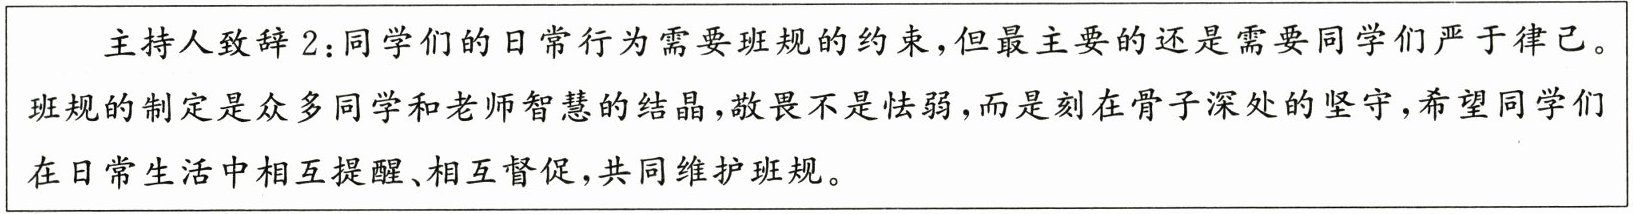 主持人致辞2:同学们的日常行为需要班规的约束,但最主要的还是需要同学们严于律己。
班规的制定是众多同学和老师智慧的结晶,敬畏不是怯弱,而是刻在骨子深处的坚守,希望同学们
在日常生活中相互提醒、相互督促,共同维护班规。